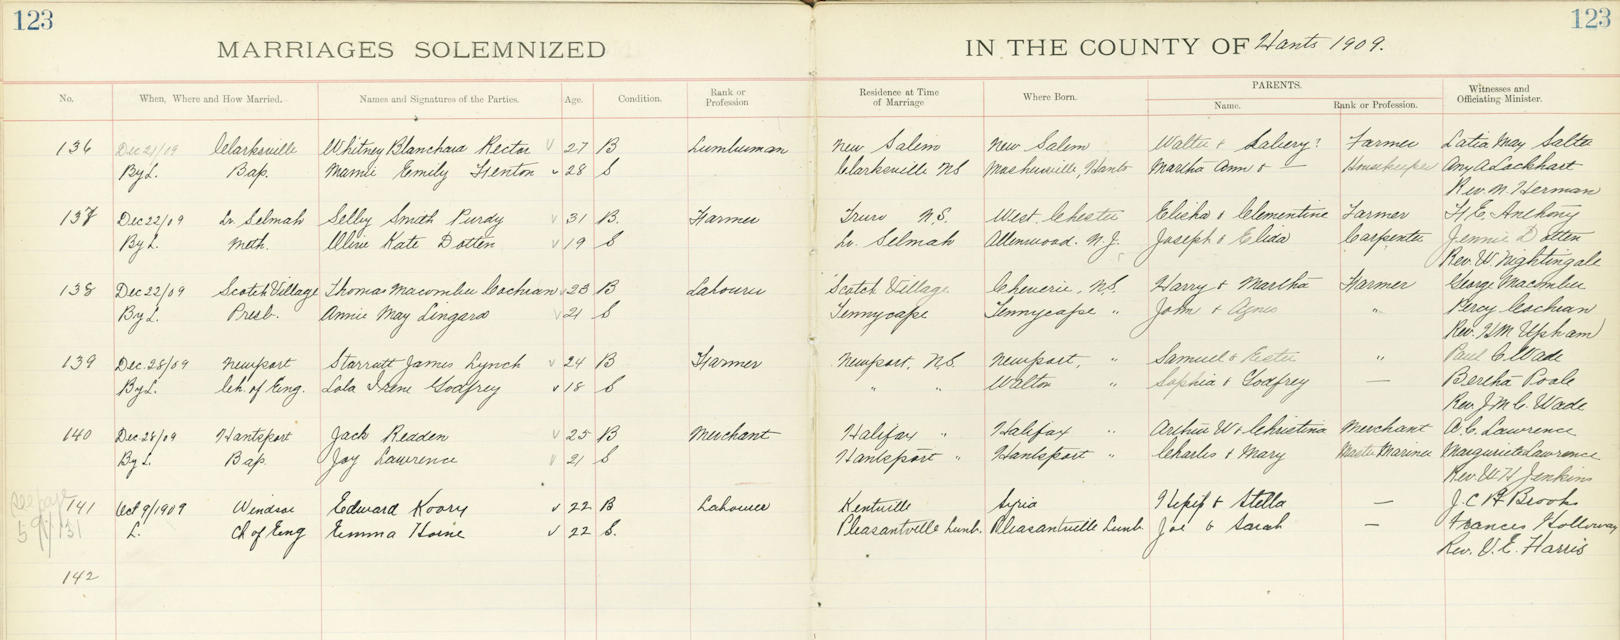 123
123
MARRIAGES SOLEMNIZED IN THE COUNTY OF Hants 1909.
No. When, Where and How Married. Names and Signatures of the Parties. Age. Condition. Rank or Profession Residence at Time of Marriage Where Born. PARENTS. Name. Rank or Profession. Witnesses and Officiating Minister.
136 Dec 21/09 Clarksville Whitney Blanchard Rector 27 B Lumberman New Salem New Salem Walter & Labery? Farmer Latia May Salter
By L. Bap. Mamie Emily Fenton 28 S Clarksville NS Mosherville, Hants Martha Ann & — Housekeeper Amy A Lockhart
Rev. M. Herman
137 Dec 22/09 Lr. Selmah Selby Smith Purdy 31 B. Farmer Truro N.S. West Chester Elisha & Clementine Farmer H. E. Anthony
By L. Meth. Olive Kate Dotten 19 S Lr. Selmah Allenwood. N.J. Joseph & Elida Carpenter Jennie Dotten
Rev. W. Nightingale
138 Dec 22/09 Scotch Village Thomas Macomber Cochran 23 B Labourer Scotch Village Cheverie, N.S. Harry & Martha Farmer George Macomber
By L. Presb. Annie May Lingard 21 S Tennycape Tennycape " John & Agnes " Percy Cochran
Rev. H.M. Upham
139 Dec. 28/09 Newport Starratt James Lynch 24 B Farmer Newport, N.S. Newport, " Samuel & Ester " Paul C. Wade
By L. Ch. of Eng. Lola Irene Godfrey 18 S " " Walton " Sophia & Godfrey — Bertha Poole
Rev. J. M. C. Wade
140 Dec 28/09 Hantsport Jack Redden 25 B Merchant Halifax " Halifax " Arthur W & Christina Merchant A. C. Lawrence
By L. Bap. Joy Lawrence 21 S Hantsport " Hantsport " Charles & Mary Master Mariner Marguriete Lawrence
Rev. W H Jenkins
see page 141 Oct 9/1909 Windsor Edward Koory 22 B Labourer Kentville Syria & Stella — J. C. Brooks
L. Ch of Eng Emma Hoine 22 S. Pleasantville Lunb. Pleasantville Lunb. Joe & Sarah — Frances Holloway
Rev. V. E. Harris
142